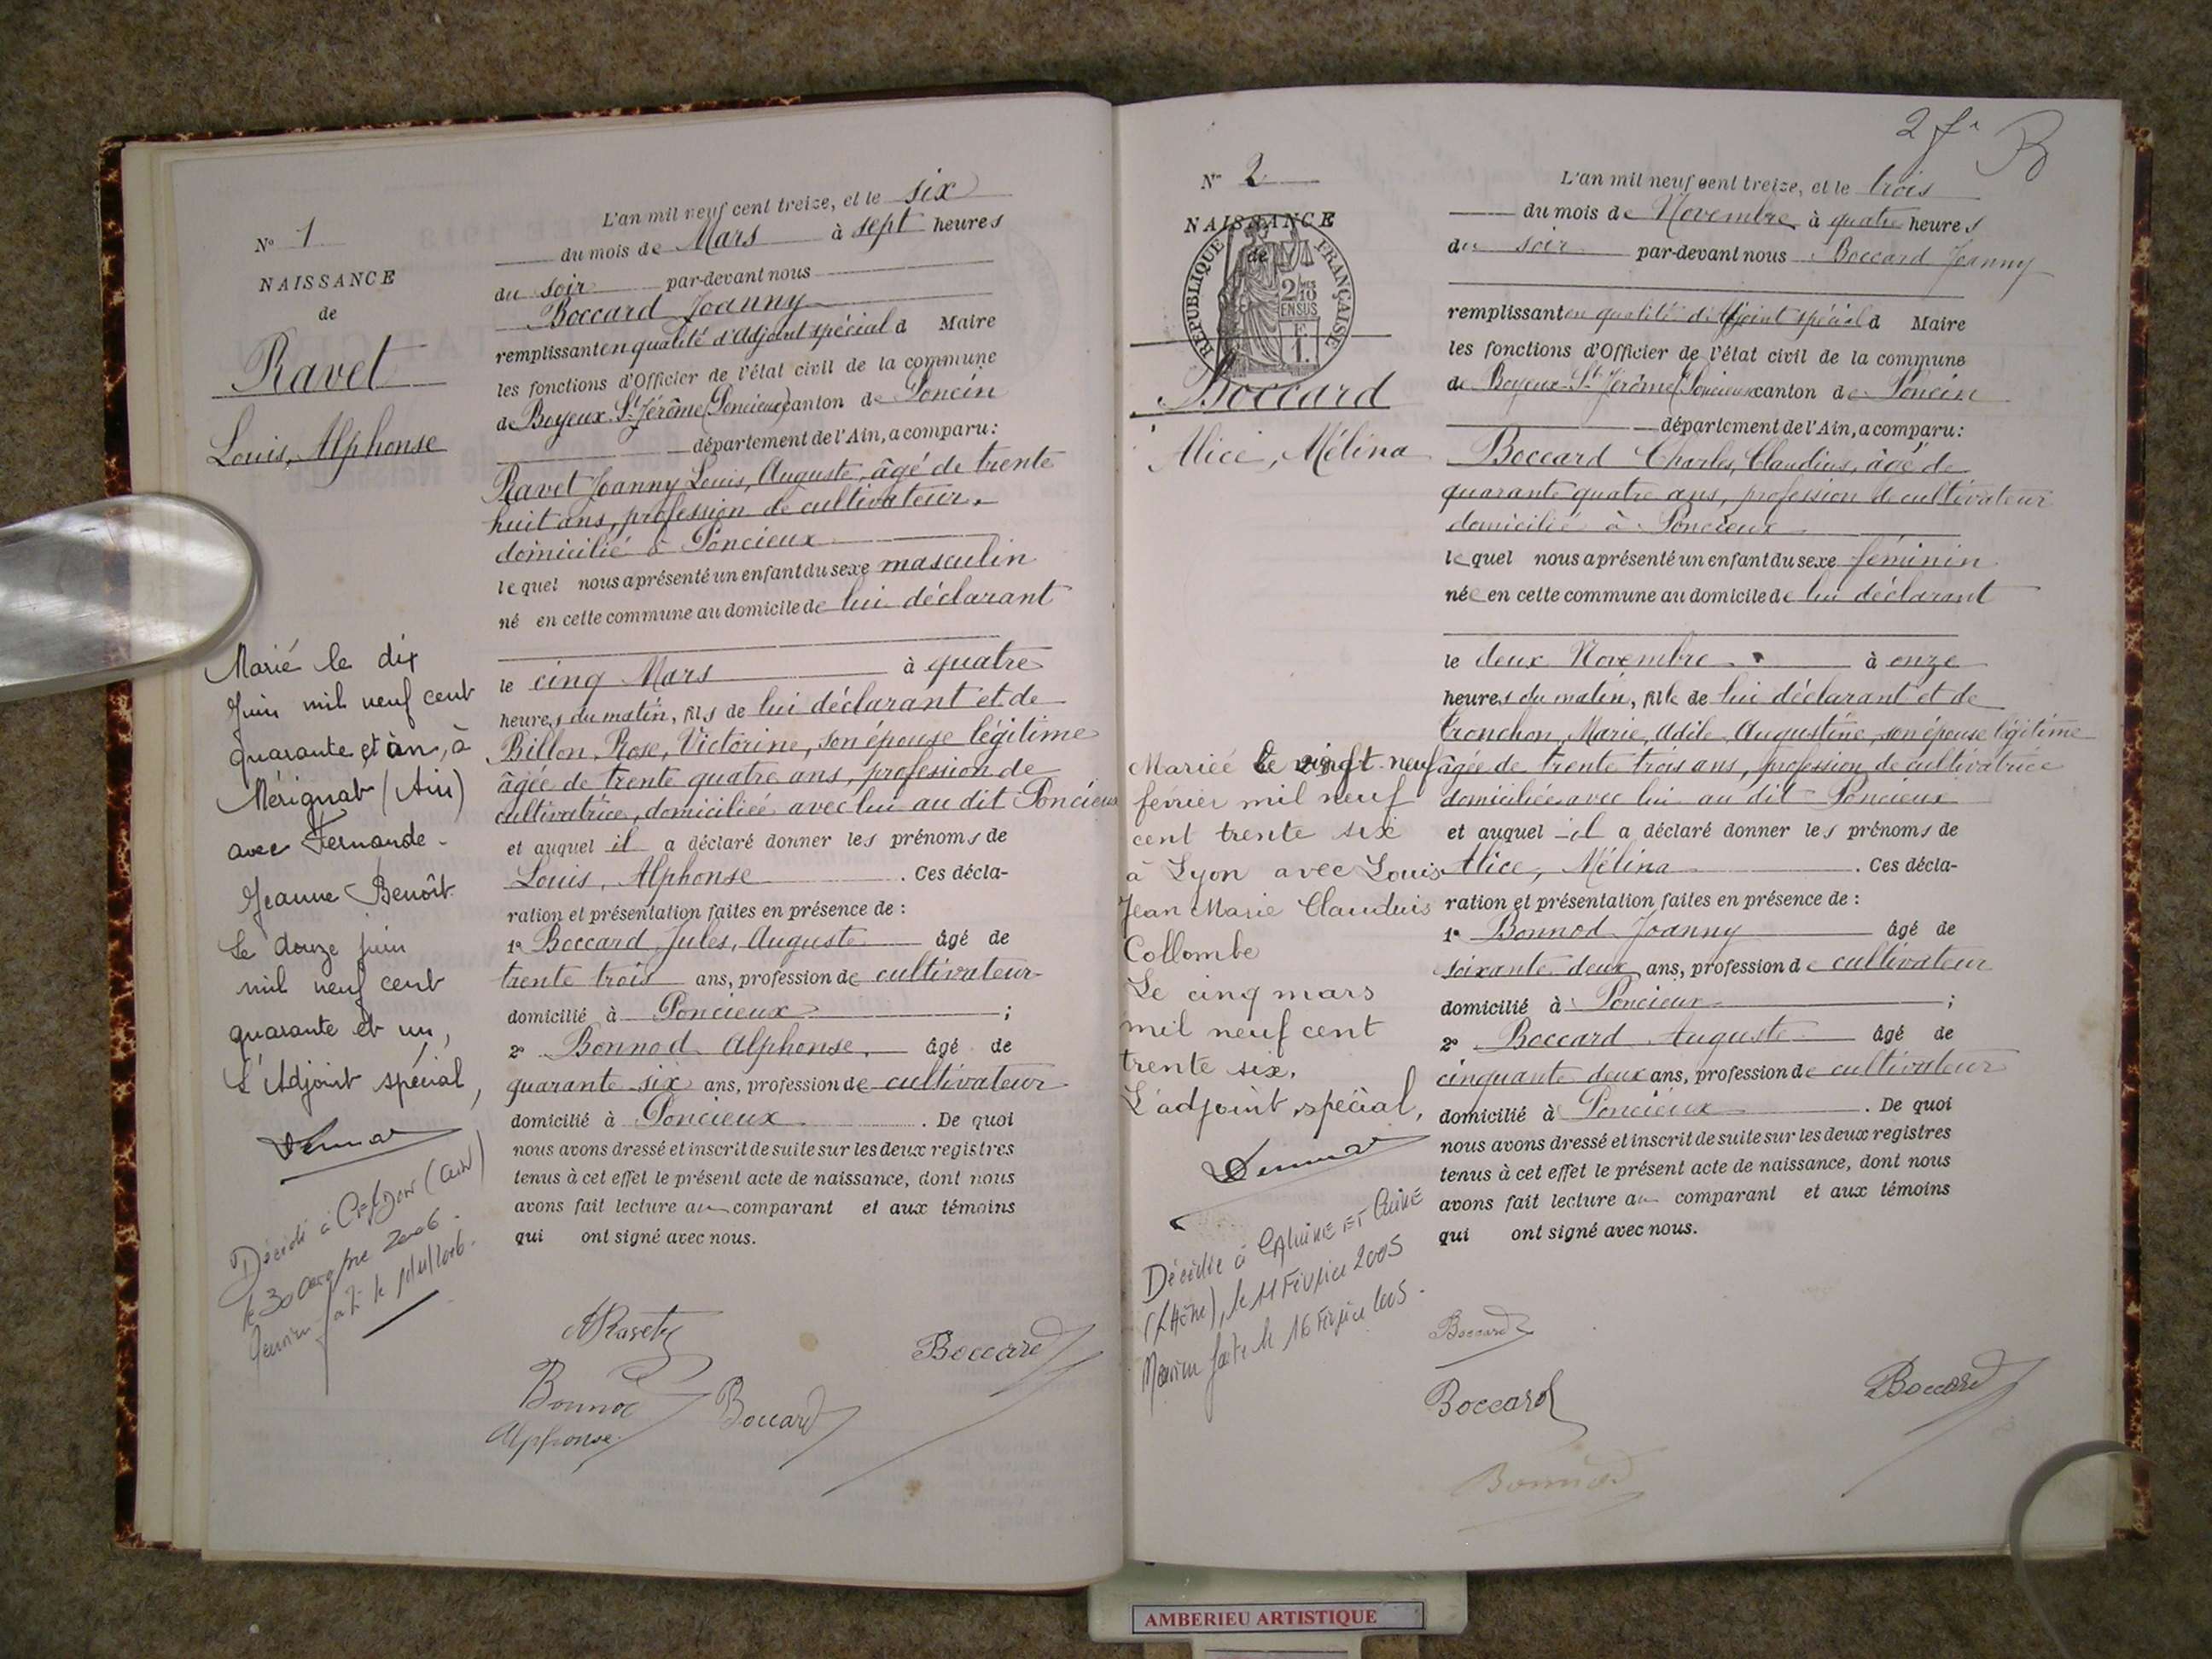 N° 1
NAISSANCE
de
Ravet
Louis, Alphonse
L'an mil neuf cent treize, et le six
du mois de Mars à sept heures
du soir par-devant nous
Boccard Joanny
remplissant en qualité d'Adjoint spécial d Maire
les fonctions d'Officier de l'état civil de la commune
de Boyeux-St-Jérôme (Poncieux) canton de Poncin
département de l'Ain, a comparu :
Ravet Joanny Louis, Auguste, âgé de trente
huit ans, profession de cultivateur,
domicilié à Poncieux
lequel nous a présenté un enfant du sexe masculin
né en cette commune au domicile de lui déclarant
le cinq Mars à quatre
heures du matin, fils de lui déclarant et de
Billon Rose, Victorine, son épouse légitime
âgée de trente quatre ans, profession de
cultivatrice, domiciliée avec lui au dit Poncieux
et auquel il a déclaré donner les prénoms de
Louis, Alphonse . Ces décla-
ration et présentation faites en présence de :
1° Boccard Jules, Auguste âgé de
trente trois ans, profession de cultivateur
domicilié à Poncieux ;
2° Bonnod Alphonse, âgé de
quarante six ans, profession de cultivateur
domicilié à Poncieux . De quoi
nous avons dressé et inscrit de suite sur les deux registres
tenus à cet effet le présent acte de naissance, dont nous
avons fait lecture au comparant et aux témoins
qui ont signé avec nous.
Marié le dix
Juin mil neuf cent
quarante et un, à
Mérignat (Ain)
avec Fernande
Jeanne Benoît.
Le douze juin
mil neuf cent
quarante et un,
L'Adjoint spécial,
Décédé à
le 30 2006.
fait le
ARavet
Boccard
Bonnod
Alphonse
Boccard
2 f. B
N° 2
NAISSANCE
de
RÉPUBLIQUE FRANÇAISE
2/10
EN SUS
F.
1.
Boccard
Alice, Mélina
L'an mil neuf cent treize, et le trois
du mois de Novembre à quatre heures
du soir par-devant nous Boccard Joanny
remplissant en qualité d'Adjoint spécial d Maire
les fonctions d'Officier de l'état civil de la commune
de Boyeux-St-Jérôme (Poncieux) canton de Poncin
département de l'Ain, a comparu :
Boccard Charles, Claudius, âgé de
quarante quatre ans, profession de cultivateur
domicilié à Poncieux
lequel nous a présenté un enfant du sexe féminin
née en cette commune au domicile de lui déclarant
le deux Novembre à onze
heures du matin, fille de lui déclarant et de
Tronchon, Marie, Adèle, Augustine, son épouse légitime
âgée de trente trois ans, profession de cultivatrice
domiciliée avec lui au dit Poncieux
et auquel il a déclaré donner les prénoms de
Alice, Mélina . Ces décla-
ration et présentation faites en présence de :
1° Bonnod Joanny âgé de
soixante deux ans, profession de cultivateur
domicilié à Poncieux ;
2° Boccard Auguste âgé de
cinquante deux ans, profession de cultivateur
domicilié à Poncieux . De quoi
nous avons dressé et inscrit de suite sur les deux registres
tenus à cet effet le présent acte de naissance, dont nous
avons fait lecture au comparant et aux témoins
qui ont signé avec nous.
Mariée le vingt-neuf
février mil neuf
cent trente six
à Lyon avec Louis
Jean Marie Claudius
Collombe
Le cinq mars
mil neuf cent
trente six.
L'adjoint spécial,
Décédée à CALUIRE ET CUIRE
(Rhône), le 11 Février 2005
Mention faite le 16 Février 2005.
Boccard
Boccard
Boccard
Bonnod
AMBERIEU ARTISTIQUE